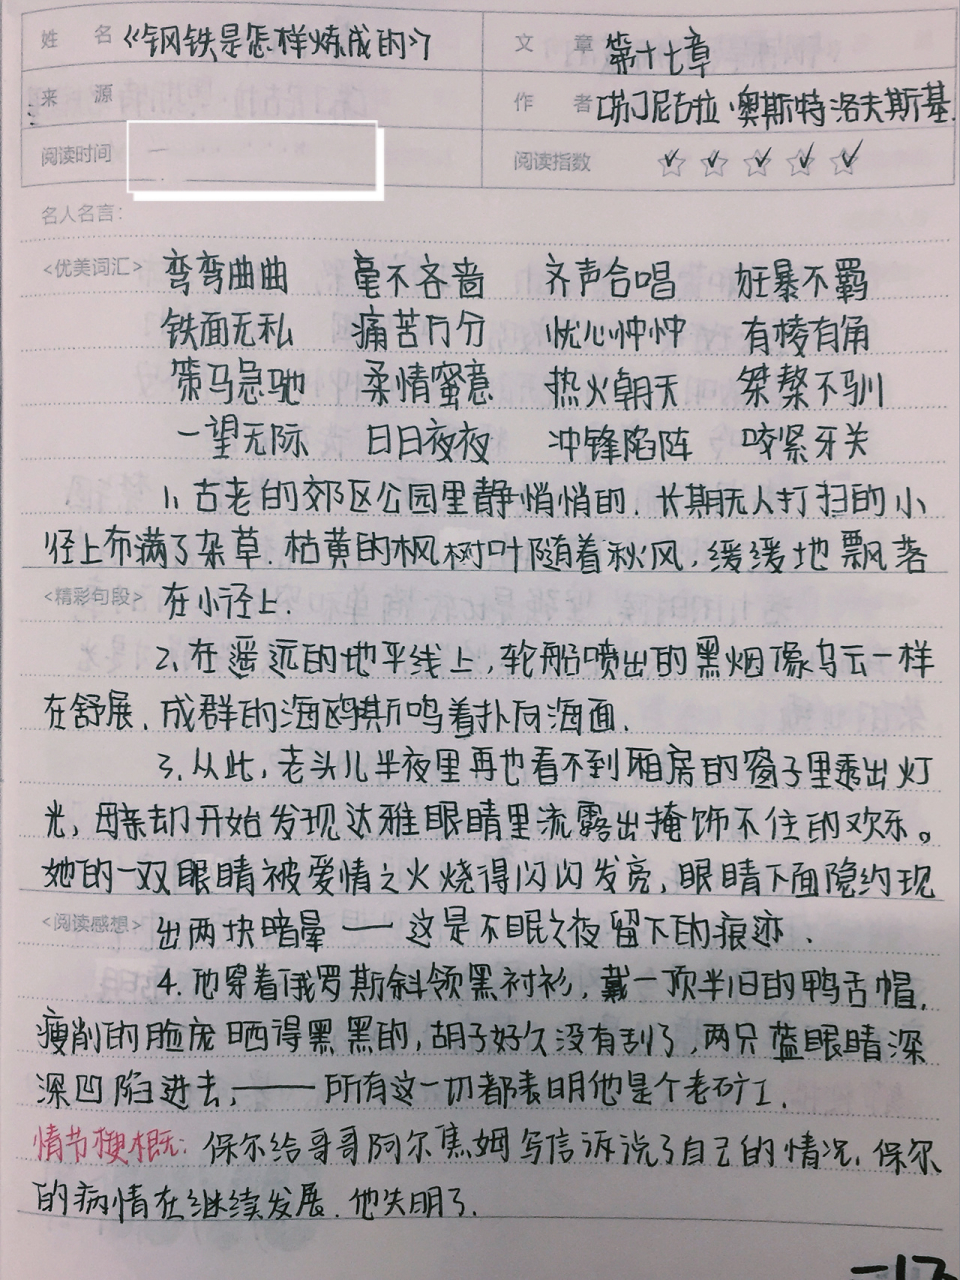 姓 名 《钢铁是怎样炼成的》 文 章 第十七章
来 源 作 者 (苏)尼古拉·奥斯特洛夫斯基.
阅读时间 阅读指数
名人名言:
<优美词汇> 弯弯曲曲 毫不吝啬 齐声合唱 狂暴不羁
铁面无私 痛苦万分 忧心忡忡 有棱有角
策马急驰 柔情蜜意 热火朝天 桀骜不驯
一望无际 日日夜夜 冲锋陷阵 咬紧牙关
1、古老的郊区公园里静悄悄的.长期无人打扫的小
径上布满了杂草.枯黄的枫树叶随着秋风,缓缓地飘落
<精彩句段> 在小径上.
2、在遥远的地平线上,轮船喷出的黑烟像乌云一样
在舒展.成群的海鸥嘶鸣着扑向海面.
3、从此,老头儿半夜里再也看不到厢房的窗子里透出灯
光,母亲却开始发现达雅眼睛里流露出掩饰不住的欢乐。
她的一双眼睛被爱情之火烧得闪闪发亮,眼睛下面隐约现
<阅读感想> 出两块暗晕——这是不眠之夜留下的痕迹.
4、他穿着俄罗斯斜领黑衬衫,戴一顶半旧的鸭舌帽.
瘦削的脸庞晒得黑黑的,胡子好久没有刮了,两只蓝眼睛深
深凹陷进去,——所有这一切都表明他是个老矿工.
情节梗概:保尔给哥哥阿尔焦姆写信诉说了自己的情况.保尔
的病情在继续发展.他失明了.